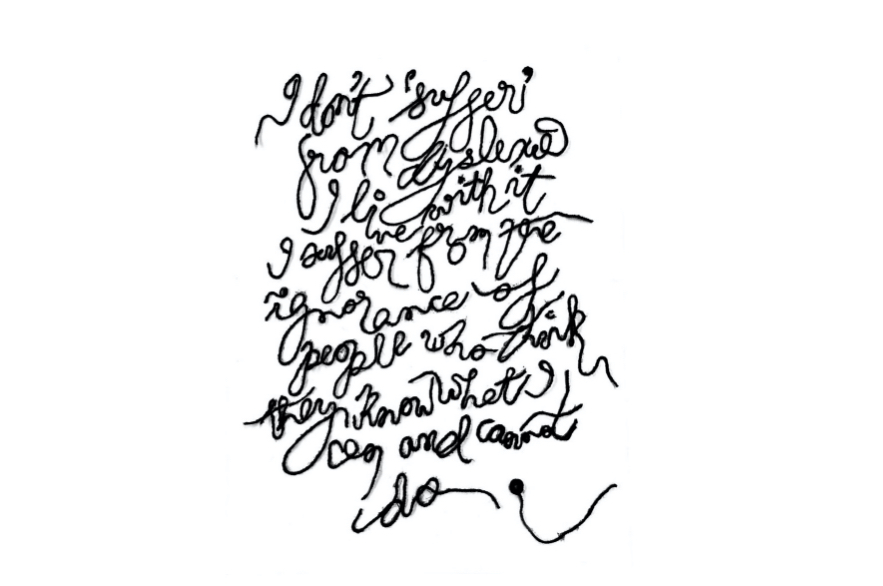 I don't 'suffer'
from dyslexia
I live with it
I suffer from the
ignorance of
people who think
they know what I
can and cannot
do.